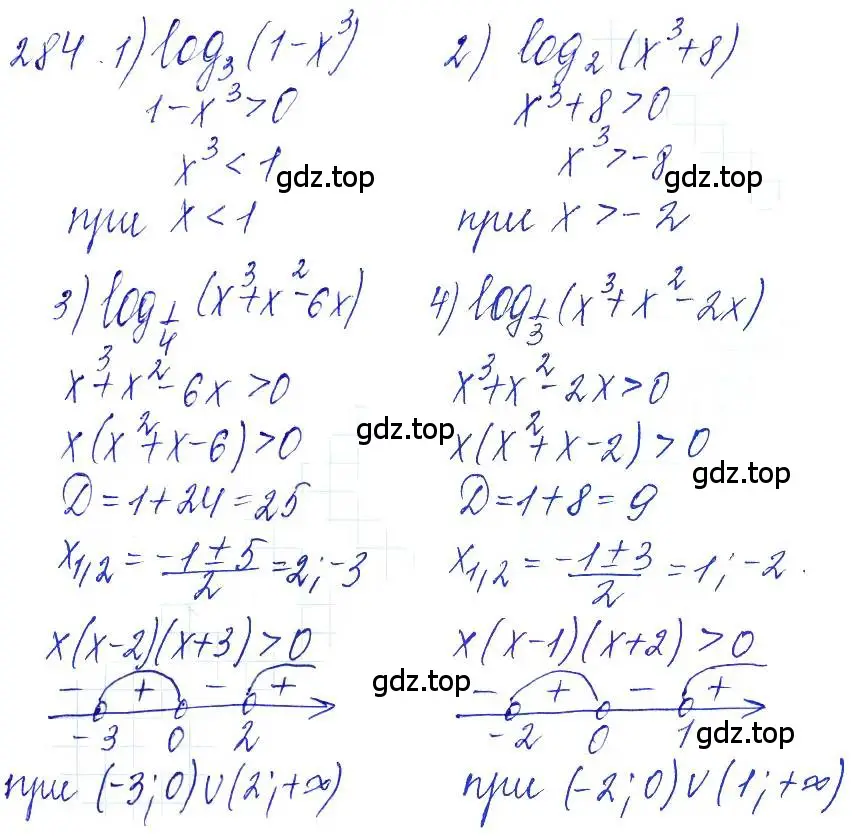 284. 1) log₃(1-x³)
1-x³>0
x³<1
при x<1
2) log₂(x³+8)
x³+8>0
x³>-8
при x>-2
3) log_{1/4}(x³+x²-6x)
x³+x²-6x>0
x(x²+x-6)>0
D=1+24=25
x₁,₂=(-1±5)/2=2;-3
x(x-2)(x+3)>0
- + - +
-3 0 2
при (-3;0)∪(2;+∞)
4) log_{1/3}(x³+x²-2x)
x³+x²-2x>0
x(x²+x-2)>0
D=1+8=9
x₁,₂=(-1±3)/2=1;-2.
x(x-1)(x+2)>0
- + - +
-2 0 1
при (-2;0)∪(1;+∞)
gdz.top
gdz.top
gdz.top
gdz.top
gdz.top
gdz.top